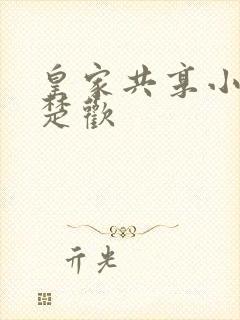 皇家共享小
楚歡
亓光